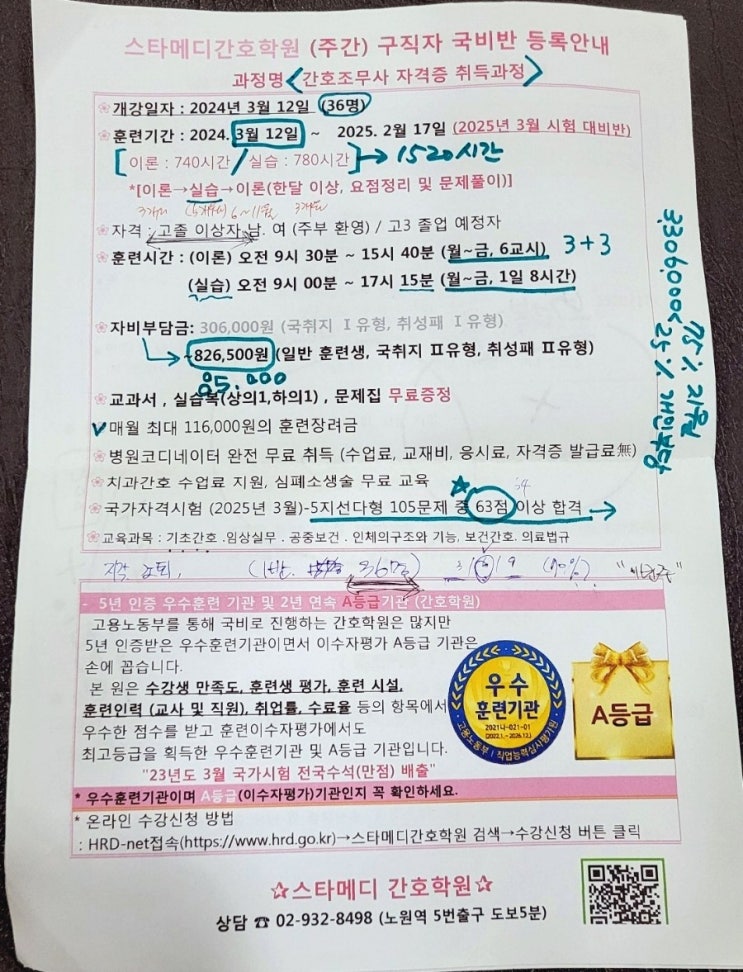 스타메디간호학원 (주간) 구직자 국비반 등록안내
과정명<간호조무사 자격증 취득과정>
개강일자 : 2024년 3월 12일 (36명)
훈련기간 : 2024. 3월 12일 ~ 2025. 2월 17일 (2025년 3월 시험 대비반)
[이론 : 740시간 / 실습 : 780시간] → 1520시간
*[이론→실습→이론(한달 이상, 요점정리 및 문제풀이)]
자격 : 고졸 이상자 남. 여 (주부 환영) / 고3 졸업 예정자
훈련시간 : (이론) 오전 9시 30분 ~ 15시 40분 (월~금, 6교시) 3+3
(실습) 오전 9시 00분 ~ 17시 15분 (월~금, 1일 8시간)
자비부담금: 306,000원 (국취지 Ⅰ유형, 취성패 Ⅰ유형)
~826,500원 (일반 훈련생, 국취지 Ⅱ유형, 취성패 Ⅱ유형)
3306,000<
75% 지원
25% 개인부담
교과서 , 실습복(상의1,하의1) , 문제집 무료증정
매월 최대 116,000원의 훈련장려금
병원코디네이터 완전 무료 취득 (수업료, 교재비, 응시료, 자격증 발급료無)
치과간호 수업료 지원, 심폐소생술 무료 교육
국가자격시험 (2025년 3월)-5지선다형 105문제 중 63점 이상 합격
교육과목 : 기초간호 .임상실무 . 공중보건 . 인체의구조와 기능, 보건간호. 의료법규
(1반. 36명)
- 5년 인증 우수훈련 기관 및 2년 연속 A등급기관 (간호학원)
고용노동부를 통해 국비로 진행하는 간호학원은 많지만
5년 인증받은 우수훈련기관이면서 이수자평가 A등급 기관은
손에 꼽습니다.
본 원은 수강생 만족도, 훈련생 평가, 훈련 시설,
훈련인력 (교사 및 직원), 취업률, 수료율 등의 항목에서
우수한 점수를 받고 훈련이수자평가에서도
최고등급을 획득한 우수훈련기관 및 A등급 기관입니다.
"23년도 3월 국가시험 전국수석(만점) 배출"
우수
훈련기관
2021나-021-01
(2022.1.~2026.12.)
고용노동부 | 직업능력심사평가원
A등급
* 우수훈련기관이며 A등급(이수자평가)기관인지 꼭 확인하세요.
* 온라인 수강신청 방법
: HRD-net접속(https://www.hrd.go.kr)→스타메디간호학원 검색→수강신청 버튼 클릭
✩스타메디 간호학원✩
상담 ☎ 02-932-8498 (노원역 5번출구 도보5분)